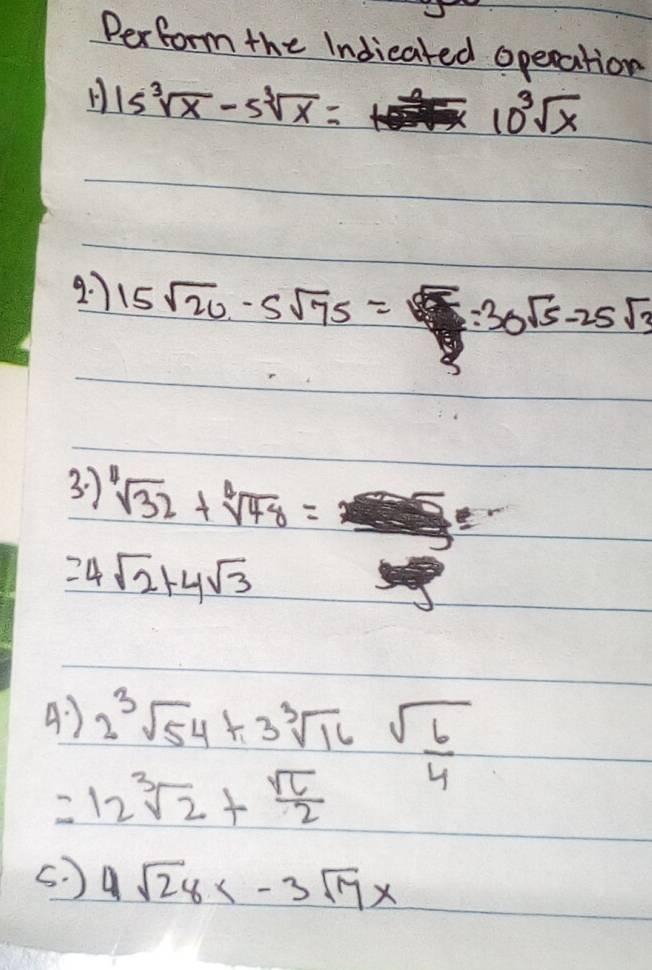 Perform the Indicated operation
1.) 15∛x - 5∛x = 10∛x
2.) 15√20 - 5√75 = = 30√5 - 25√3
3.) ∜32 + ∜48 = =
= 4√2 + 4√3
4.) 2∛54 + 3∛16 √6/4
= 12∛2 + √6/2
5.) 4√28x - 3√7x